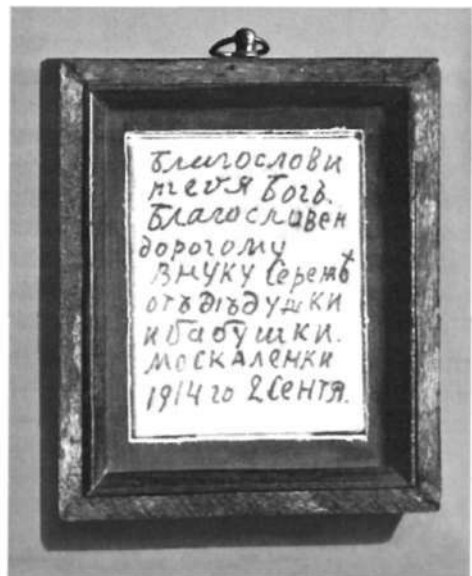 благослови
тебя Богъ.
благославен
дорогому
внуку Сережѣ
отъ дѣдушки
и бабушки.
москаленки
1914 го 2 Сентя.